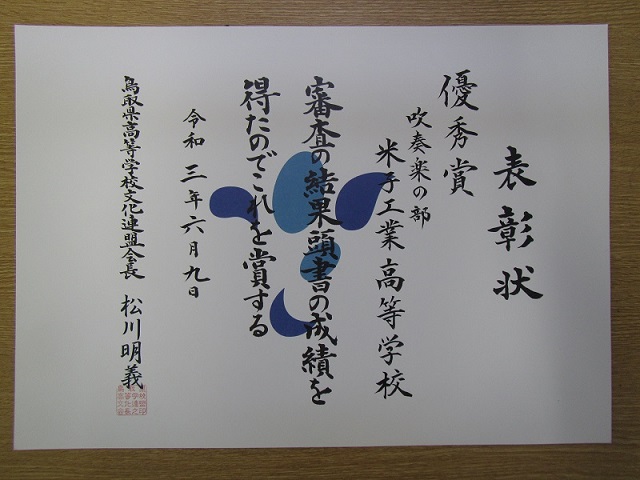 表彰状
優秀賞
吹奏楽の部
米子工業高等学校
審査の結果頭書の成績を
得たのでこれを賞する
令和三年六月九日
鳥取県高等学校文化連盟会長 松川明義